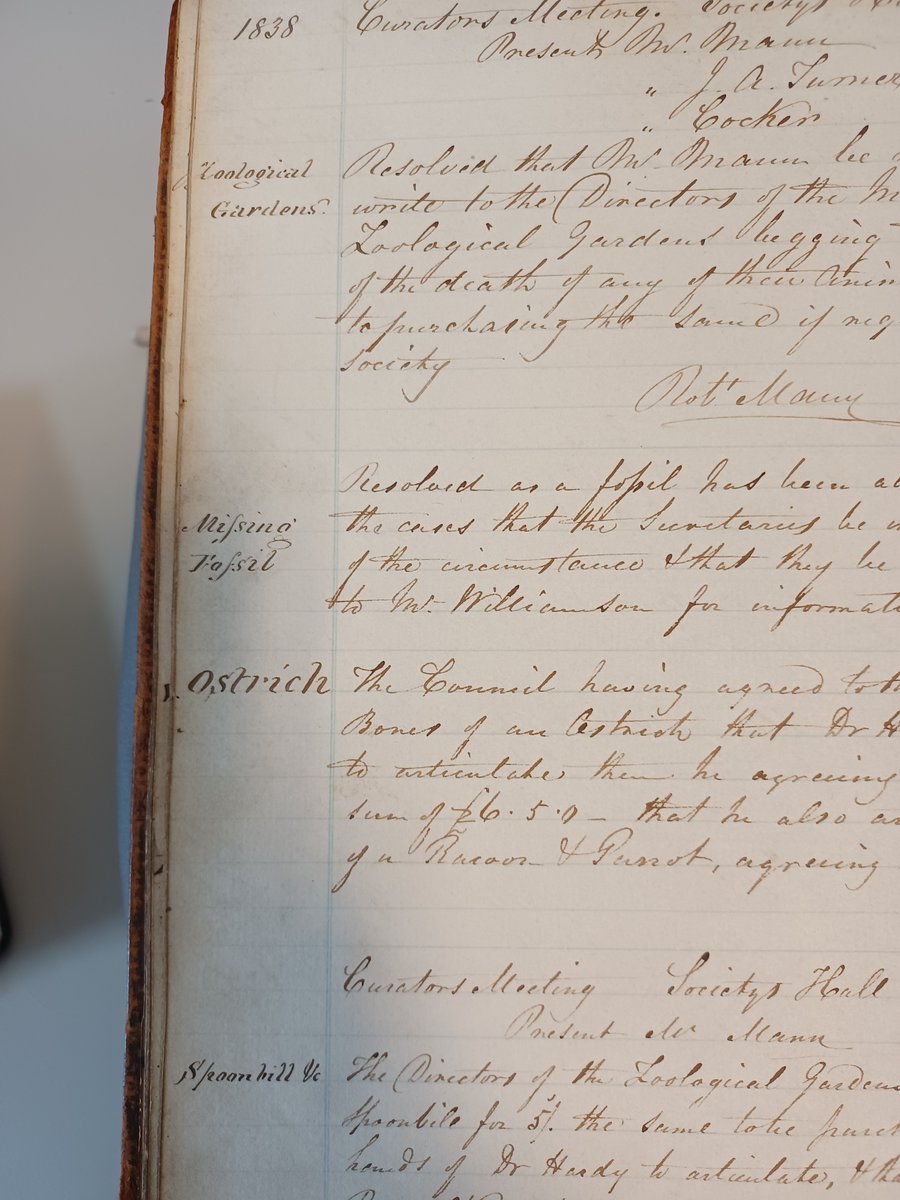 1838
Curators Meeting. Societys
Present Mr. Mann
" J. A. Turner
" Cocker
Zoological
Gardens.
Resolved that Mr. Mann be
write to the Directors of the M
Zoological Gardens begging
of the death of any of their Anim
to purchasing the same if req
society
Robt Mann
Missing
Fossil
Resolved as a fossil has been
the cases that the Secretaries be
of the circumstance & that they be
to Mr. Williamson for informati
Ostrich
The Council having agreed to th
Bones of an Ostrich that Dr H
to articulate them he agreeing
sum of £6.5.0 – that he also ar
of a Racoon & Parrot, agreeing
Curators Meeting Societys Hall
Present Mr Mann
Spoonbill &c
The Directors of the Zoological Gardens
Spoonbile for 5/. the same to be purc
hands of Dr Hardy to articulate, & tha